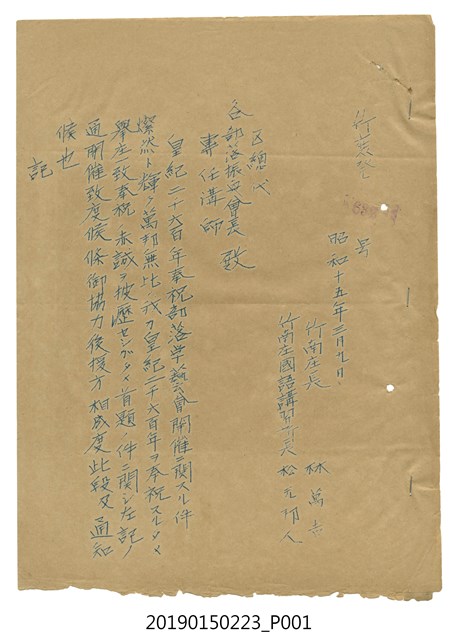 竹庄發
號
昭和十五年二月九日
竹南庄長 林萬
竹南庄國語講習所長 松元
區總代
各部落振興會長 致
專任講師
皇紀二千六百年奉祝部落學藝會開催ニ関スル件
燦然ト輝ク萬邦無比我カ皇紀二千六百年ヲ奉祝スルタメ
擧庄一致奉祝ノ赤誠ヲ披歷センガタメ首題ノ件ニ関シ左記ノ
通開催致度候條御協力後援方相成度此段及通知
候也
記
20190150223_P001